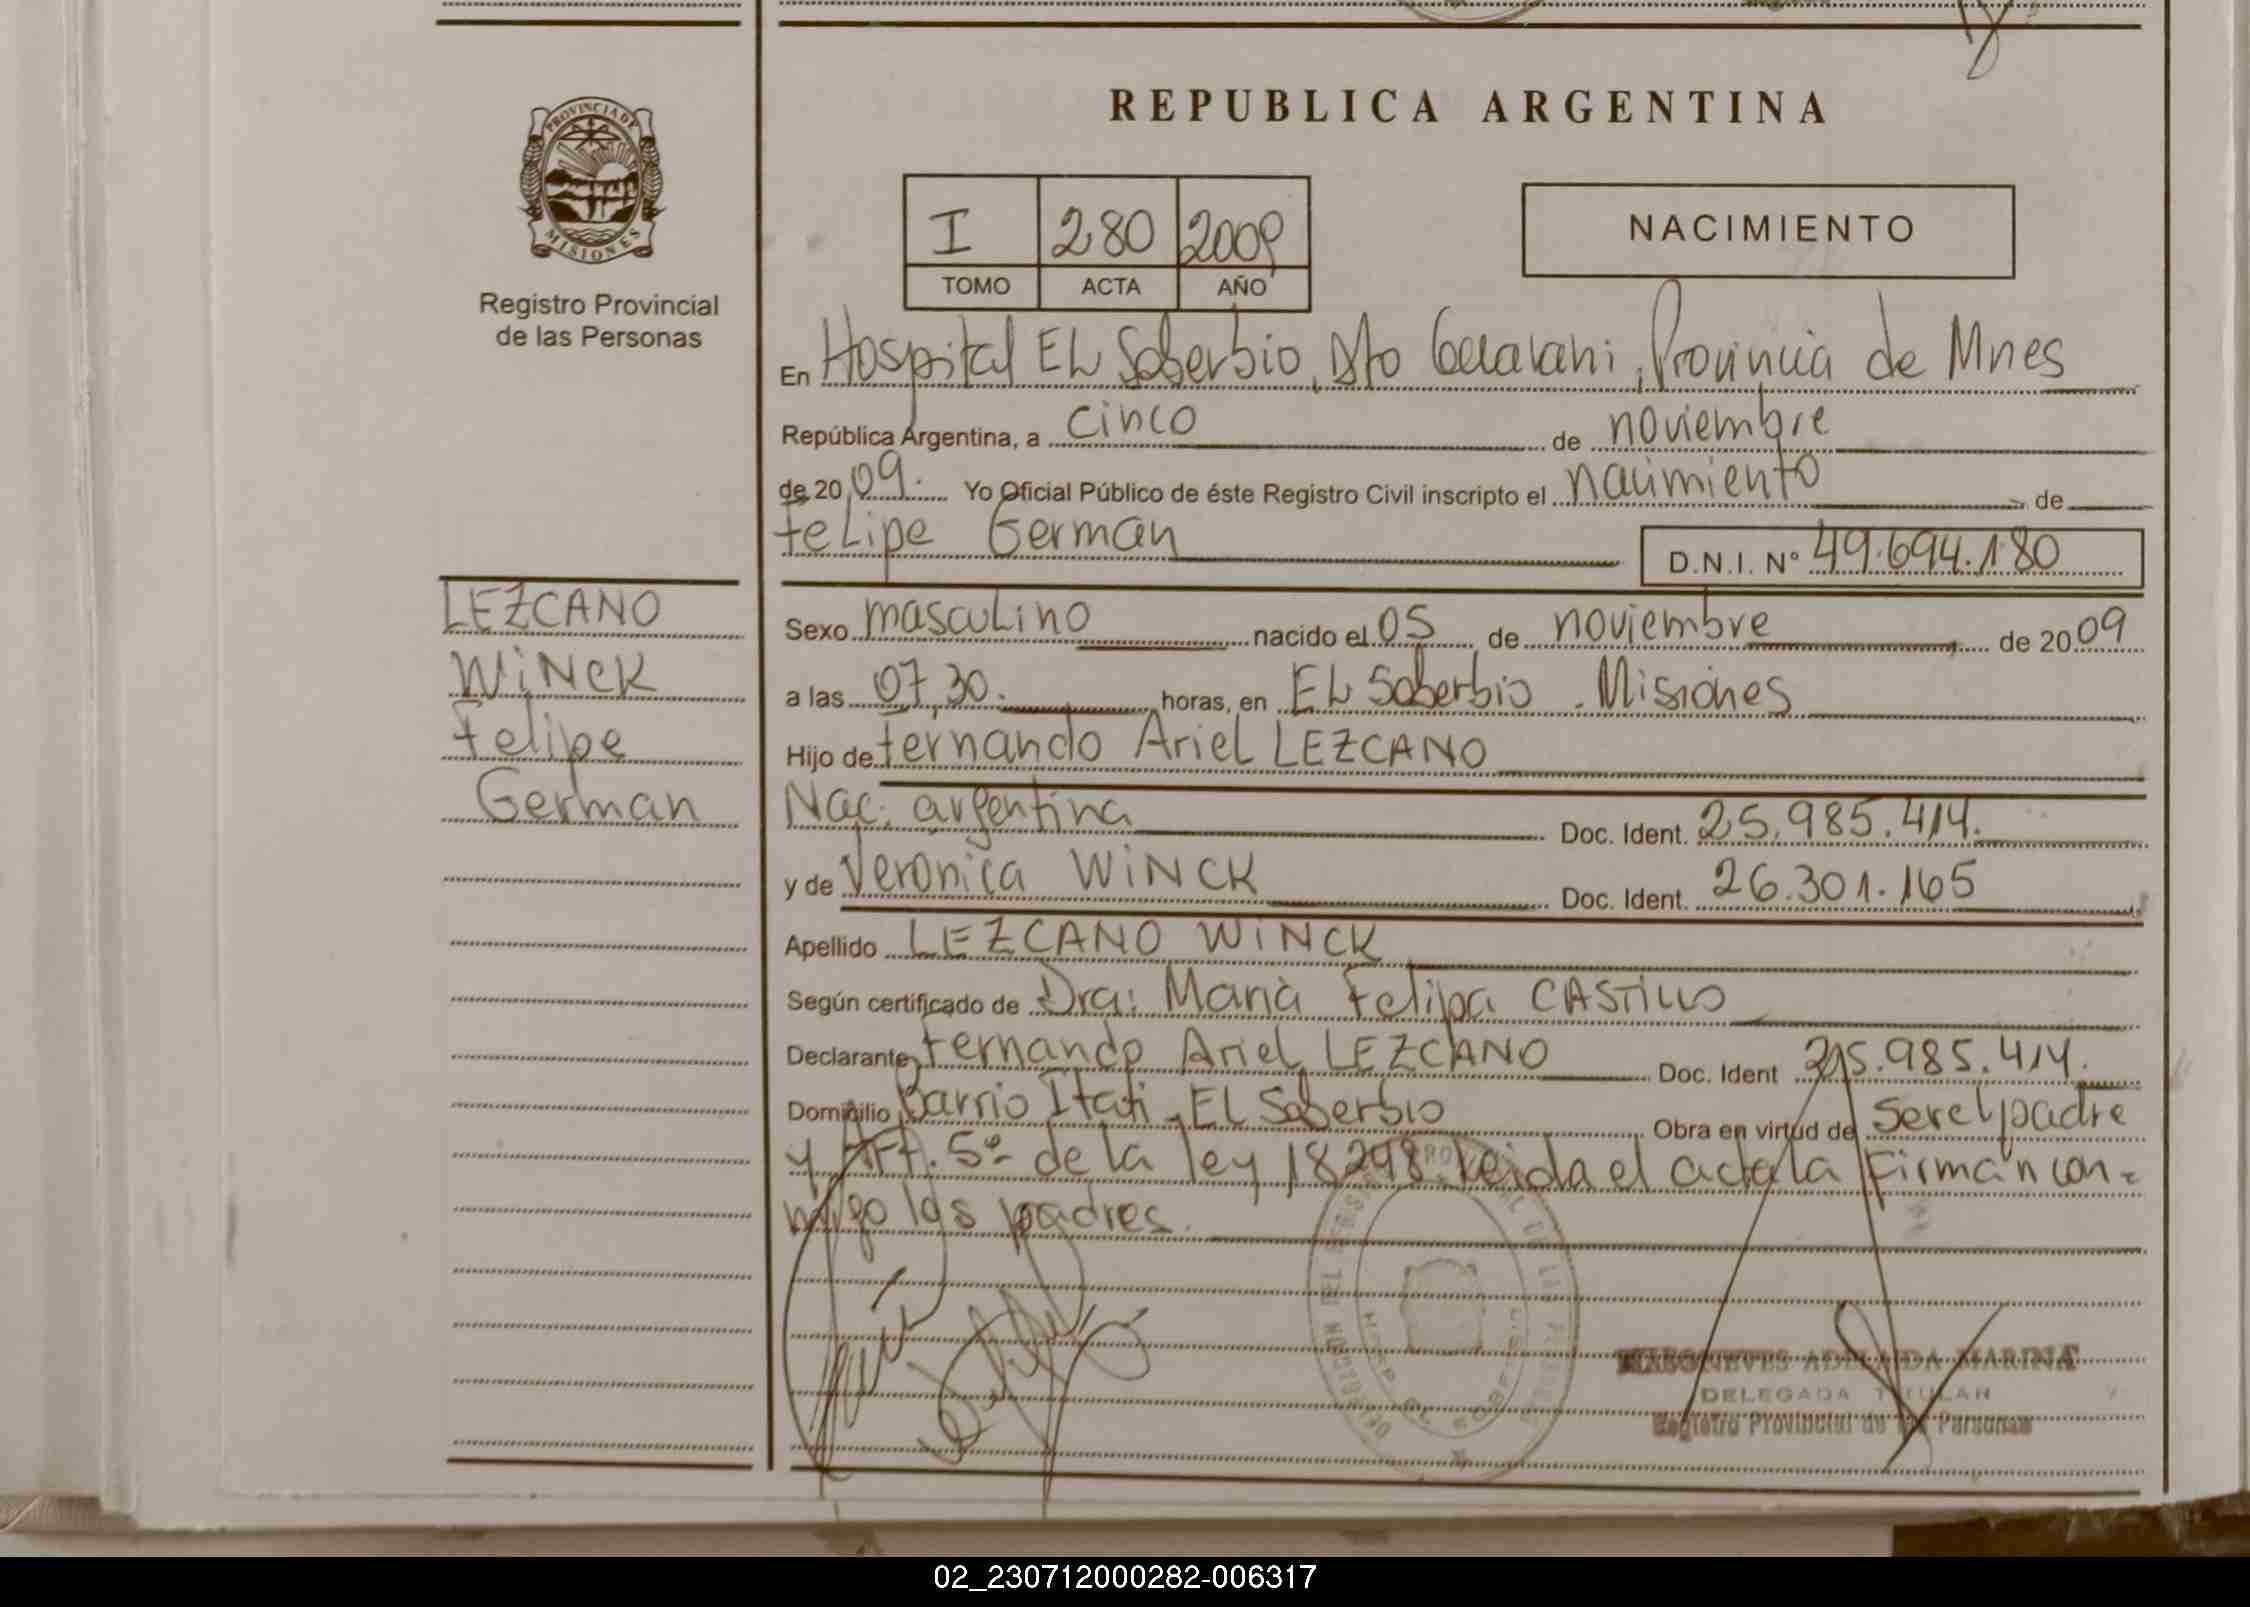 REPUBLICA ARGENTINA
PROVINCIA DE
MISIONES
Registro Provincial
de las Personas
I 280 2009
TOMO ACTA AÑO
NACIMIENTO
En Hospital EL Soberbio, Dto Guarani, Provincia de Mnes
República Argentina, a cinco de noviembre
de 2009. Yo Oficial Público de éste Registro Civil inscripto el nacimiento de
Felipe German D.N.I. Nº 49.694.180
LEZCANO
WiNCK
Felipe
German
Sexo masculino nacido el 05 de noviembre de 2009
a las 07,30. horas, en EL Soberbio . Misiones
Hijo de Fernando Ariel LEZCANO
Nac: argentina Doc. Ident. 25.985.414.
y de Veronica WiNCK Doc. Ident. 26.301.165
Apellido LEZCANO WiNCK
Según certificado de Dra: Maria Felipa CASTILLO
Declarante Fernando Ariel LEZCANO Doc. Ident 25.985.414.
Domicilio Barrio Itati - EL Soberbio Obra en virtud de ser el padre
y Art. 5º de la ley 18248. Leida el acta la firman con-
migo los padres.
DELEGACION DEL REGISTRO PROVINCIAL DE LAS PERSONAS
HOSP. EL SOBERBIO
ADELAIDA MARINA
DELEGADA TITULAR
Registro Provincial de las Personas
02_230712000282-006317